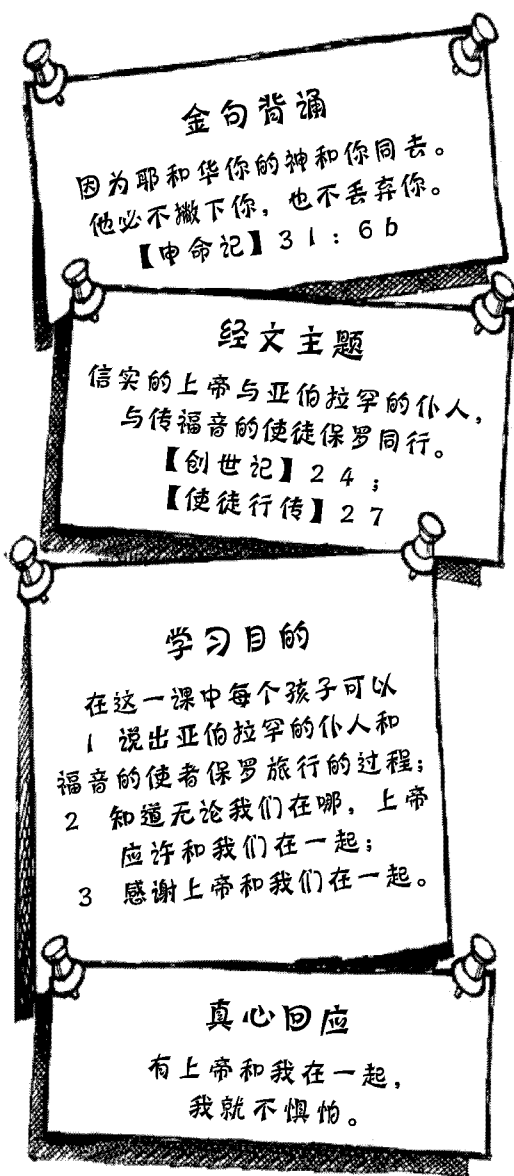 金句背诵
因为耶和华你的神和你同去。
他必不撇下你，也不丢弃你。
【申命记】31：6b
经文主题
信实的上帝与亚伯拉罕的仆人，
与传福音的使徒保罗同行。
【创世记】24；
【使徒行传】27
学习目的
在这一课中每个孩子可以
1 说出亚伯拉罕的仆人和
福音的使者保罗旅行的过程；
2 知道无论我们在哪，上帝
应许和我们在一起；
3 感谢上帝和我们在一起。
真心回应
有上帝和我在一起，
我就不惧怕。